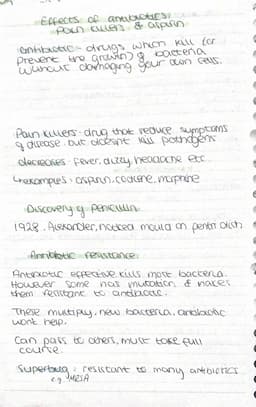 Effects of antibiotics
Pain killers & aspirin
antibiotic - drugs which kill (or
prevent the growth) of bacteria
without damaging your own cells.
Pain killers - drug that reduce symptoms
of disease, but doesnt kill pathogens
decreases - fever, dizzy, headache etc
examples - aspirin, codeine, morphine
Discovery of Penicillin
1928, Alexander, noticed mould on petri dish
Antibiotic resistance
Antibiotic effective kills most bacteria.
However some has mutation & makes
them resistant to antibiotic.
These multiply, new bacteria, antibiotic
wont help.
Can pass to others, must take full
course.
Superbug - resistant to many antibiotics
e.g. MRSA